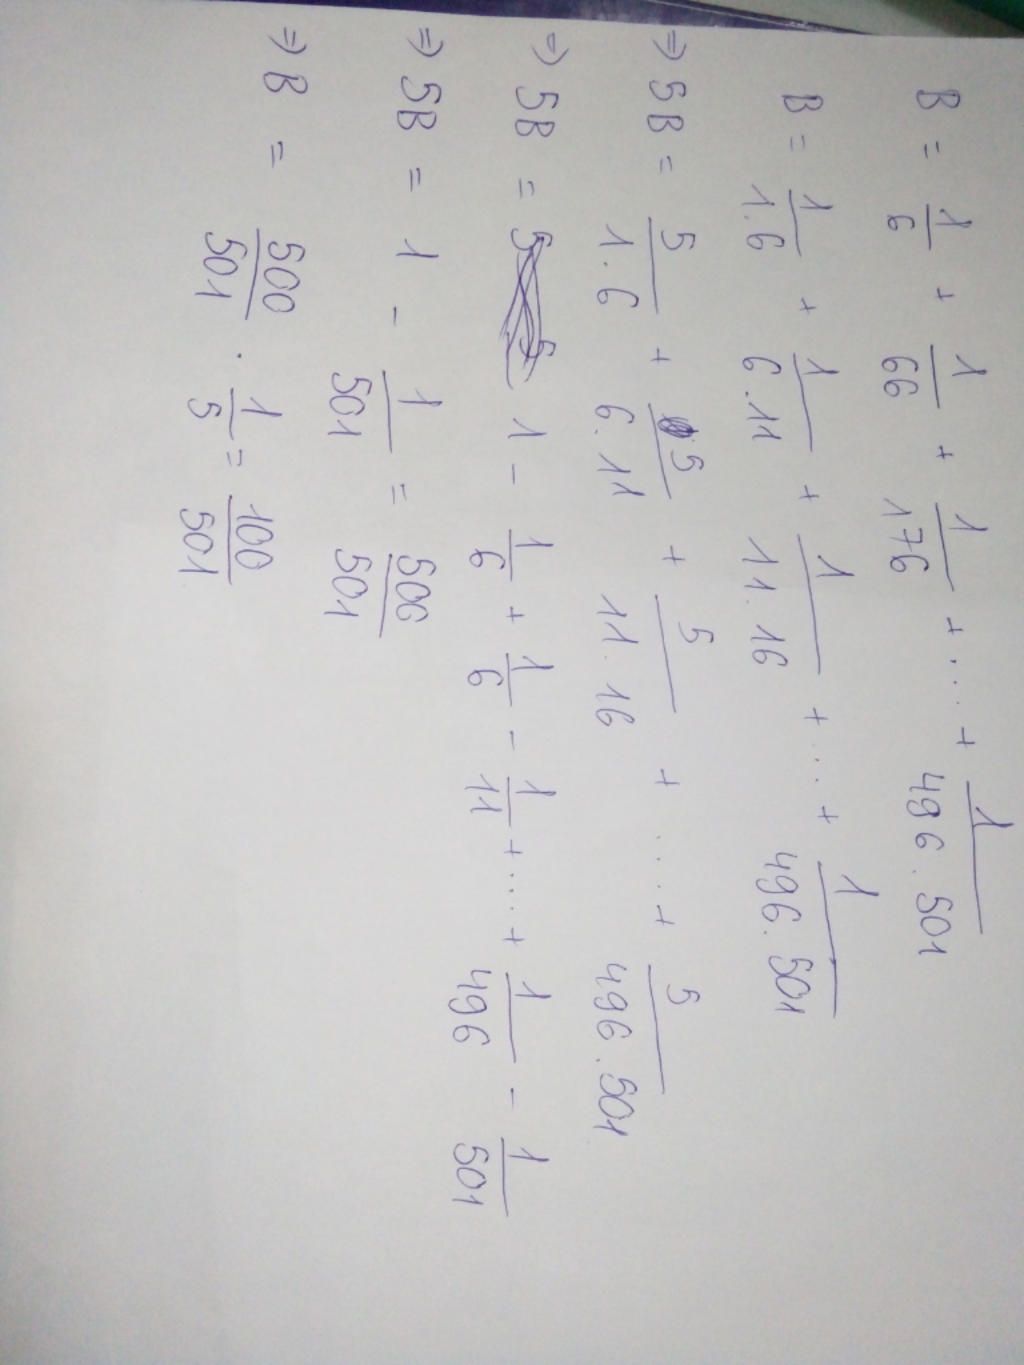 B = 1/6 + 1/66 + 1/176 + ... + 1/496.501
B = 1/1.6 + 1/6.11 + 1/11.16 + ... + 1/496.501
=> 5B = 5/1.6 + 5/6.11 + 5/11.16 + ... + 5/496.501
=> 5B = 1 - 1/6 + 1/6 - 1/11 + ... + 1/496 - 1/501
=> 5B = 1 - 1/501 = 500/501
=> B = 500/501 . 1/5 = 100/501